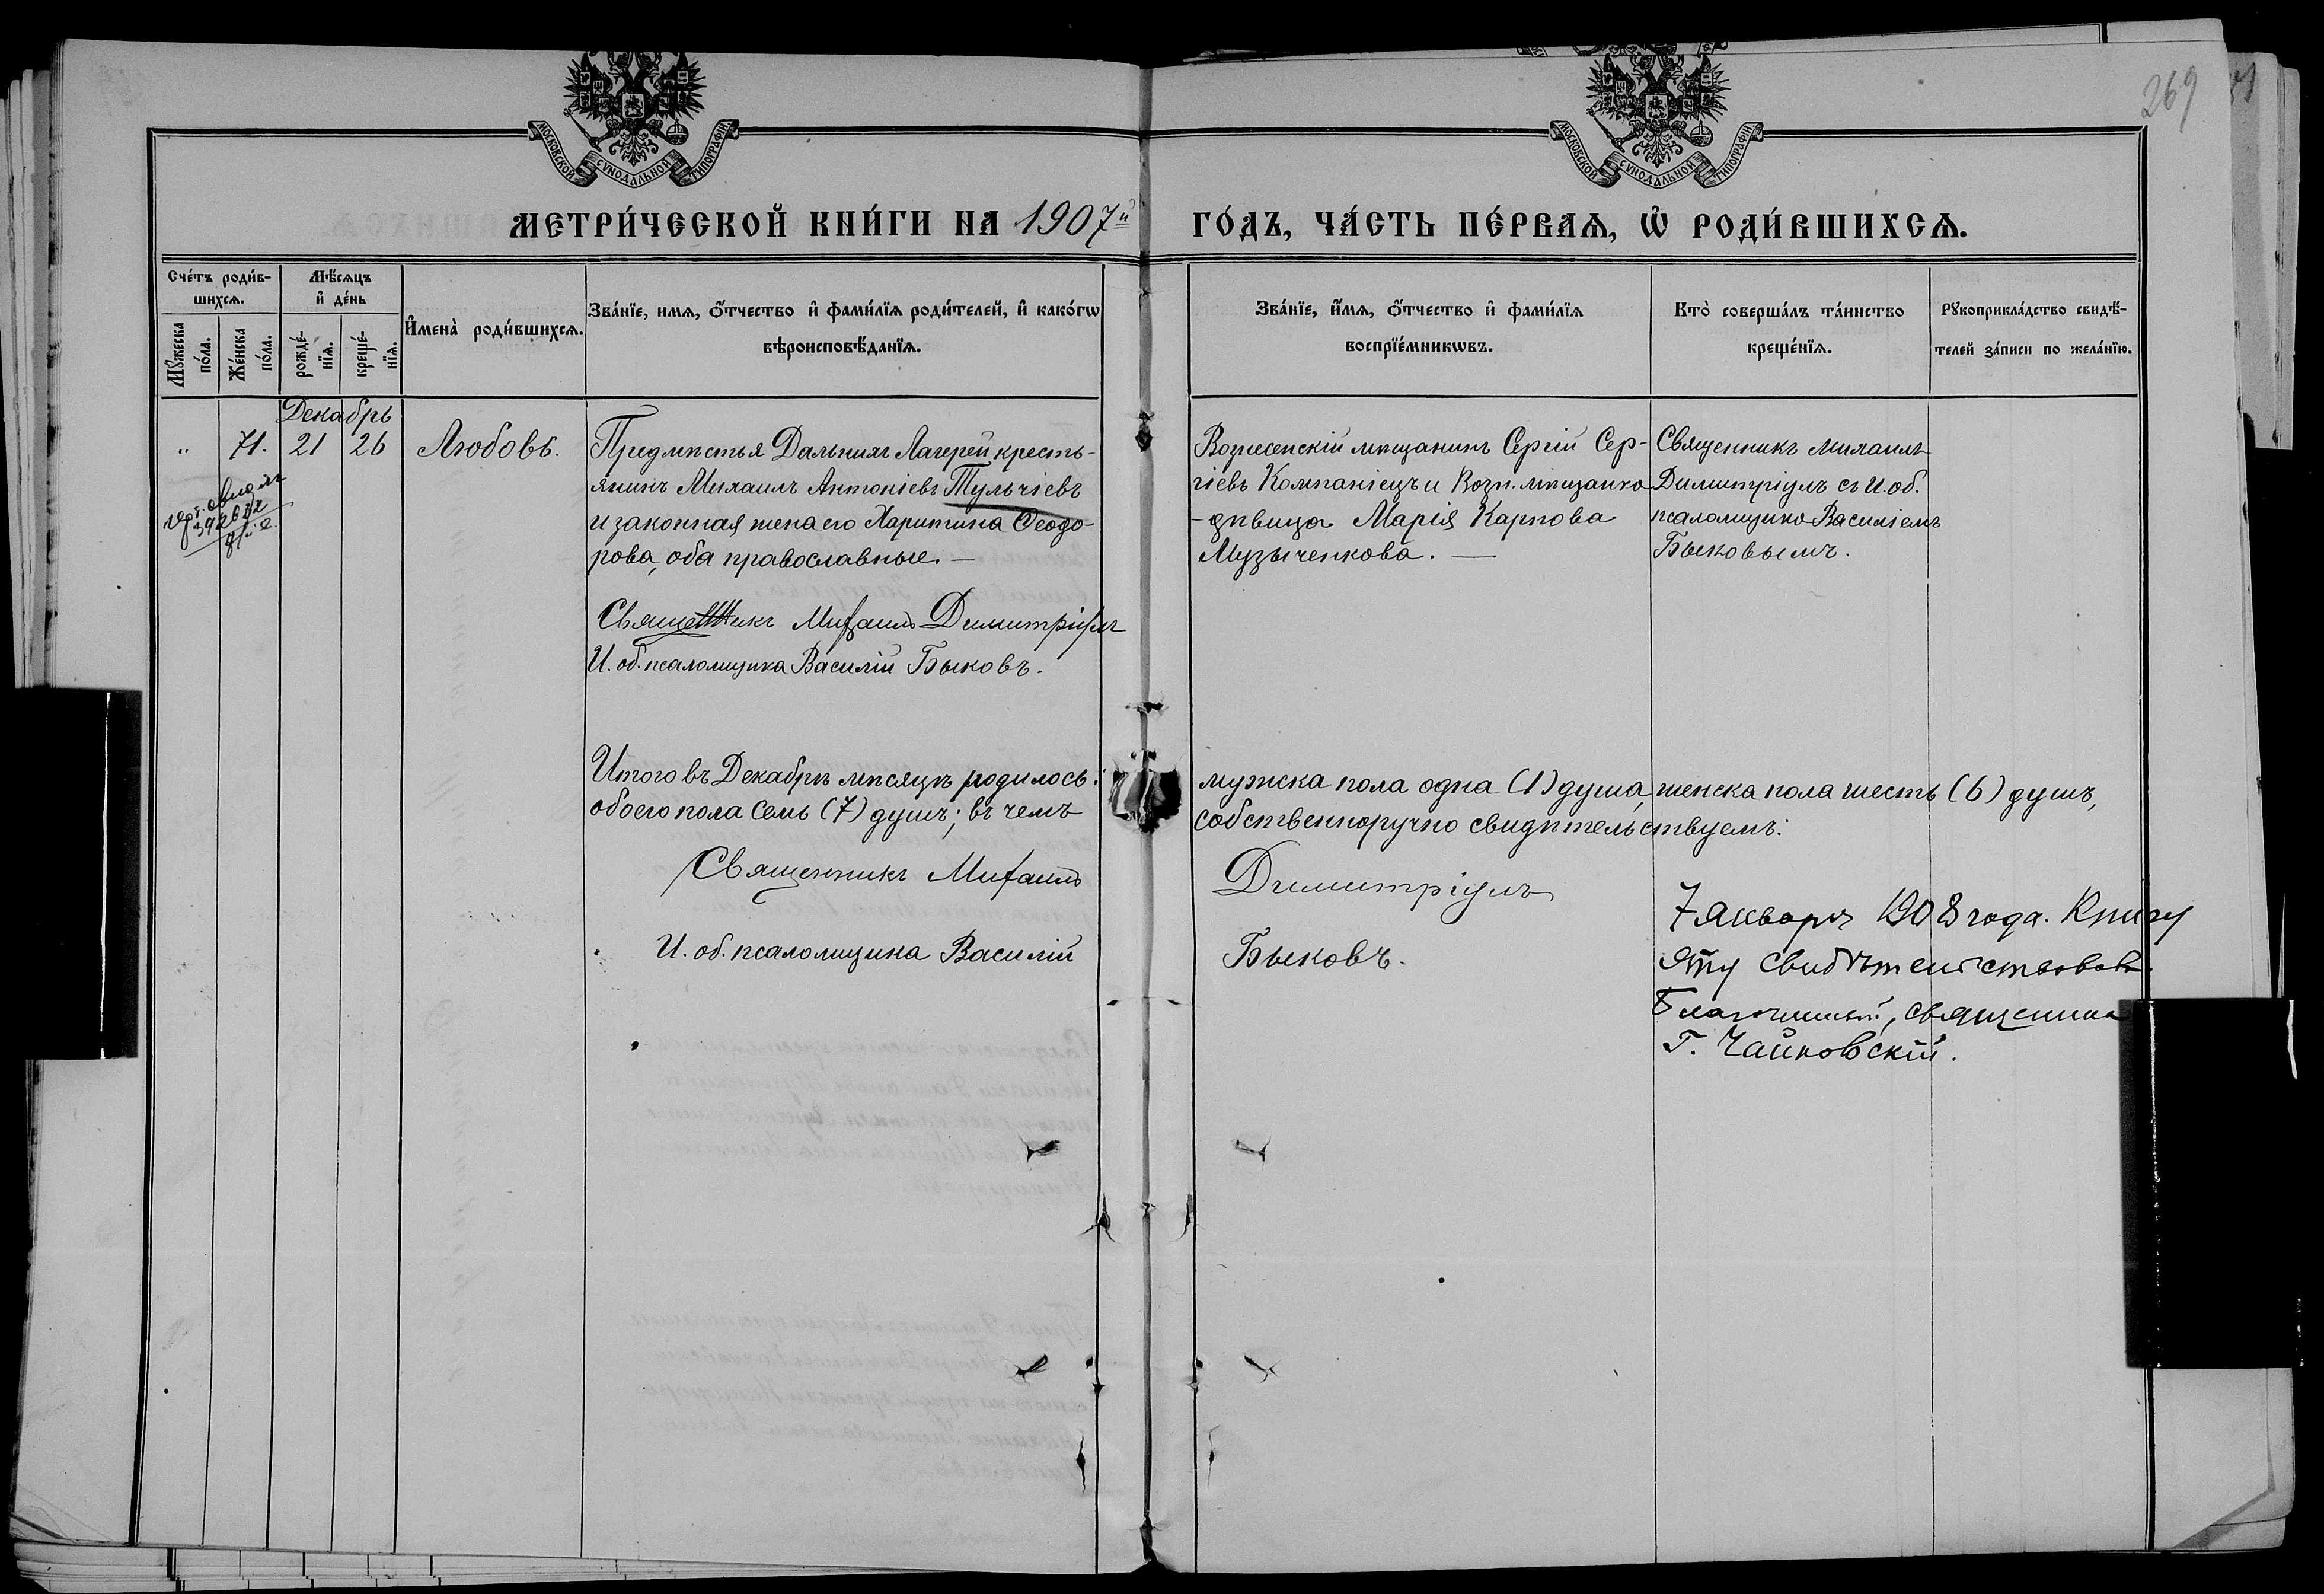 269
МОСКОВСКОЙ СѴНОДАЛЬНОЙ ТИПОГРАФІИ
МОСКОВСКОЙ СѴНОДАЛЬНОЙ ТИПОГРАФІИ
МЕТРИ́ЧЕСКОЙ КНИ́ГИ НА 1907й
ГО́ДЪ, ЧА́СТЬ ПЕ́РВАѦ, Ѡ҆ РОДИ́ВШИХСѦ.
Сче́тъ роди́в-
шихсѧ.
Мѣ́сѧцъ
и҆ де́нь
Мꙋ́жеска
по́ла.
Же́нска
по́ла.
рожде́-
нїѧ.
креще́-
нїѧ.
И҆мена̀ роди́вшихсѧ.
Зва́нїе, имѧ, ѻ҆́тчество и҆ фами́лїѧ роди́телей, и҆ како́гѡ
вѣроисповѣ́данїѧ.
Зва́нїе, и҆́мѧ, ѻ҆́тчество и҆ фами́лїѧ
воспрїе́мникѡвъ.
Кто̀ соверша́лъ та́инство
креще́нїѧ.
Рꙋкоприкла́дство свидѣ́-
телей за́писи по жела́нїю.
Декабрь
" 71. 21 26 Любовь.
392672
Предмѣстья Дальнихъ Лагерей кресть-
янинъ Михаилъ Антоніевъ Тульчіевъ
и законная жена его Харитина Ѳеодо-
рова, оба православные. —
Священникъ Михаилъ Димитріулъ
И. об. псаломщика Василій Быковъ.
Вознесенскій мѣщанинъ Сергій Сер-
гіевъ Компаніецъ и Возн. мѣщанка
-дѣвица Марія Карпова
Музыченкова. —
Священникъ Михаилъ
Димитріулъ съ И. об.
псаломщика Василіемъ
Быковымъ.
Итого въ Декабрѣ мѣсяцѣ родилось:
мужска пола одна (1) душа, женска пола шесть (6) душъ,
обоего пола семь (7) душъ; въ чемъ
собственноручно свидѣтельствуемъ:
Священникъ Михаилъ
Димитріулъ
И. об. псаломщика Василій
Быковъ.
7 Января 1908 года. Книгу
эту свидѣтельствовалъ
Благочинный, священникъ
Г. Чайковскій.